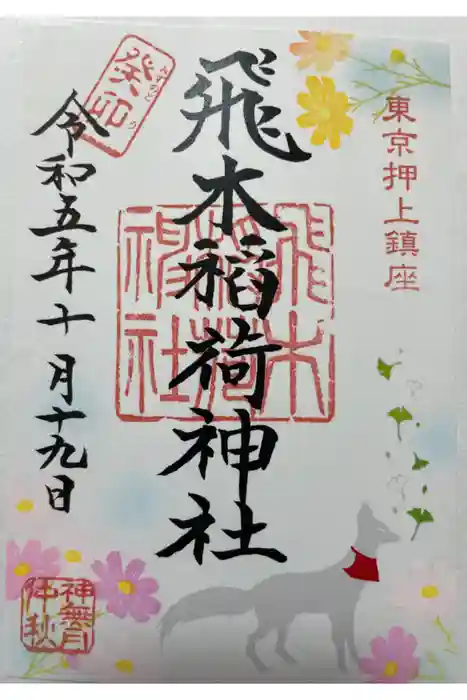 東京押上鎮座
飛木稲荷神社
飛木稲荷神社
癸卯
みずのと う
令和五年十月十九日
神無月
仲秋